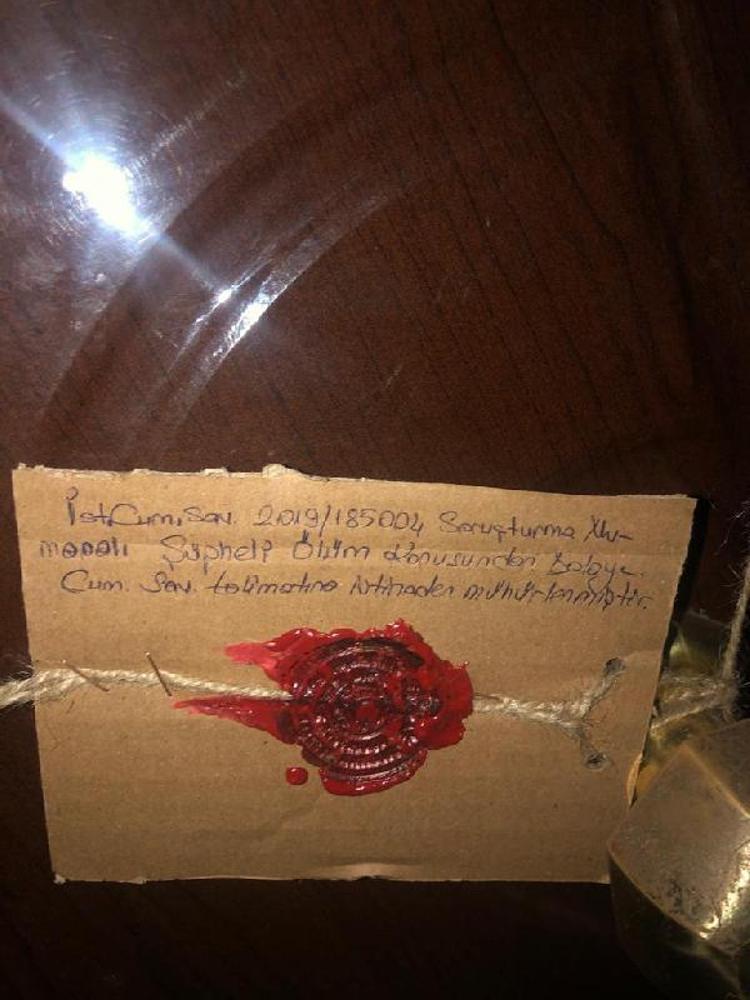 İst.Cum.Sav. 2019/185004 Soruşturma Nu-
maralı Şüpheli Ölüm Konusundan Dolayı
Cum. Sav. talimatına istinaden mühürlenmiştir.